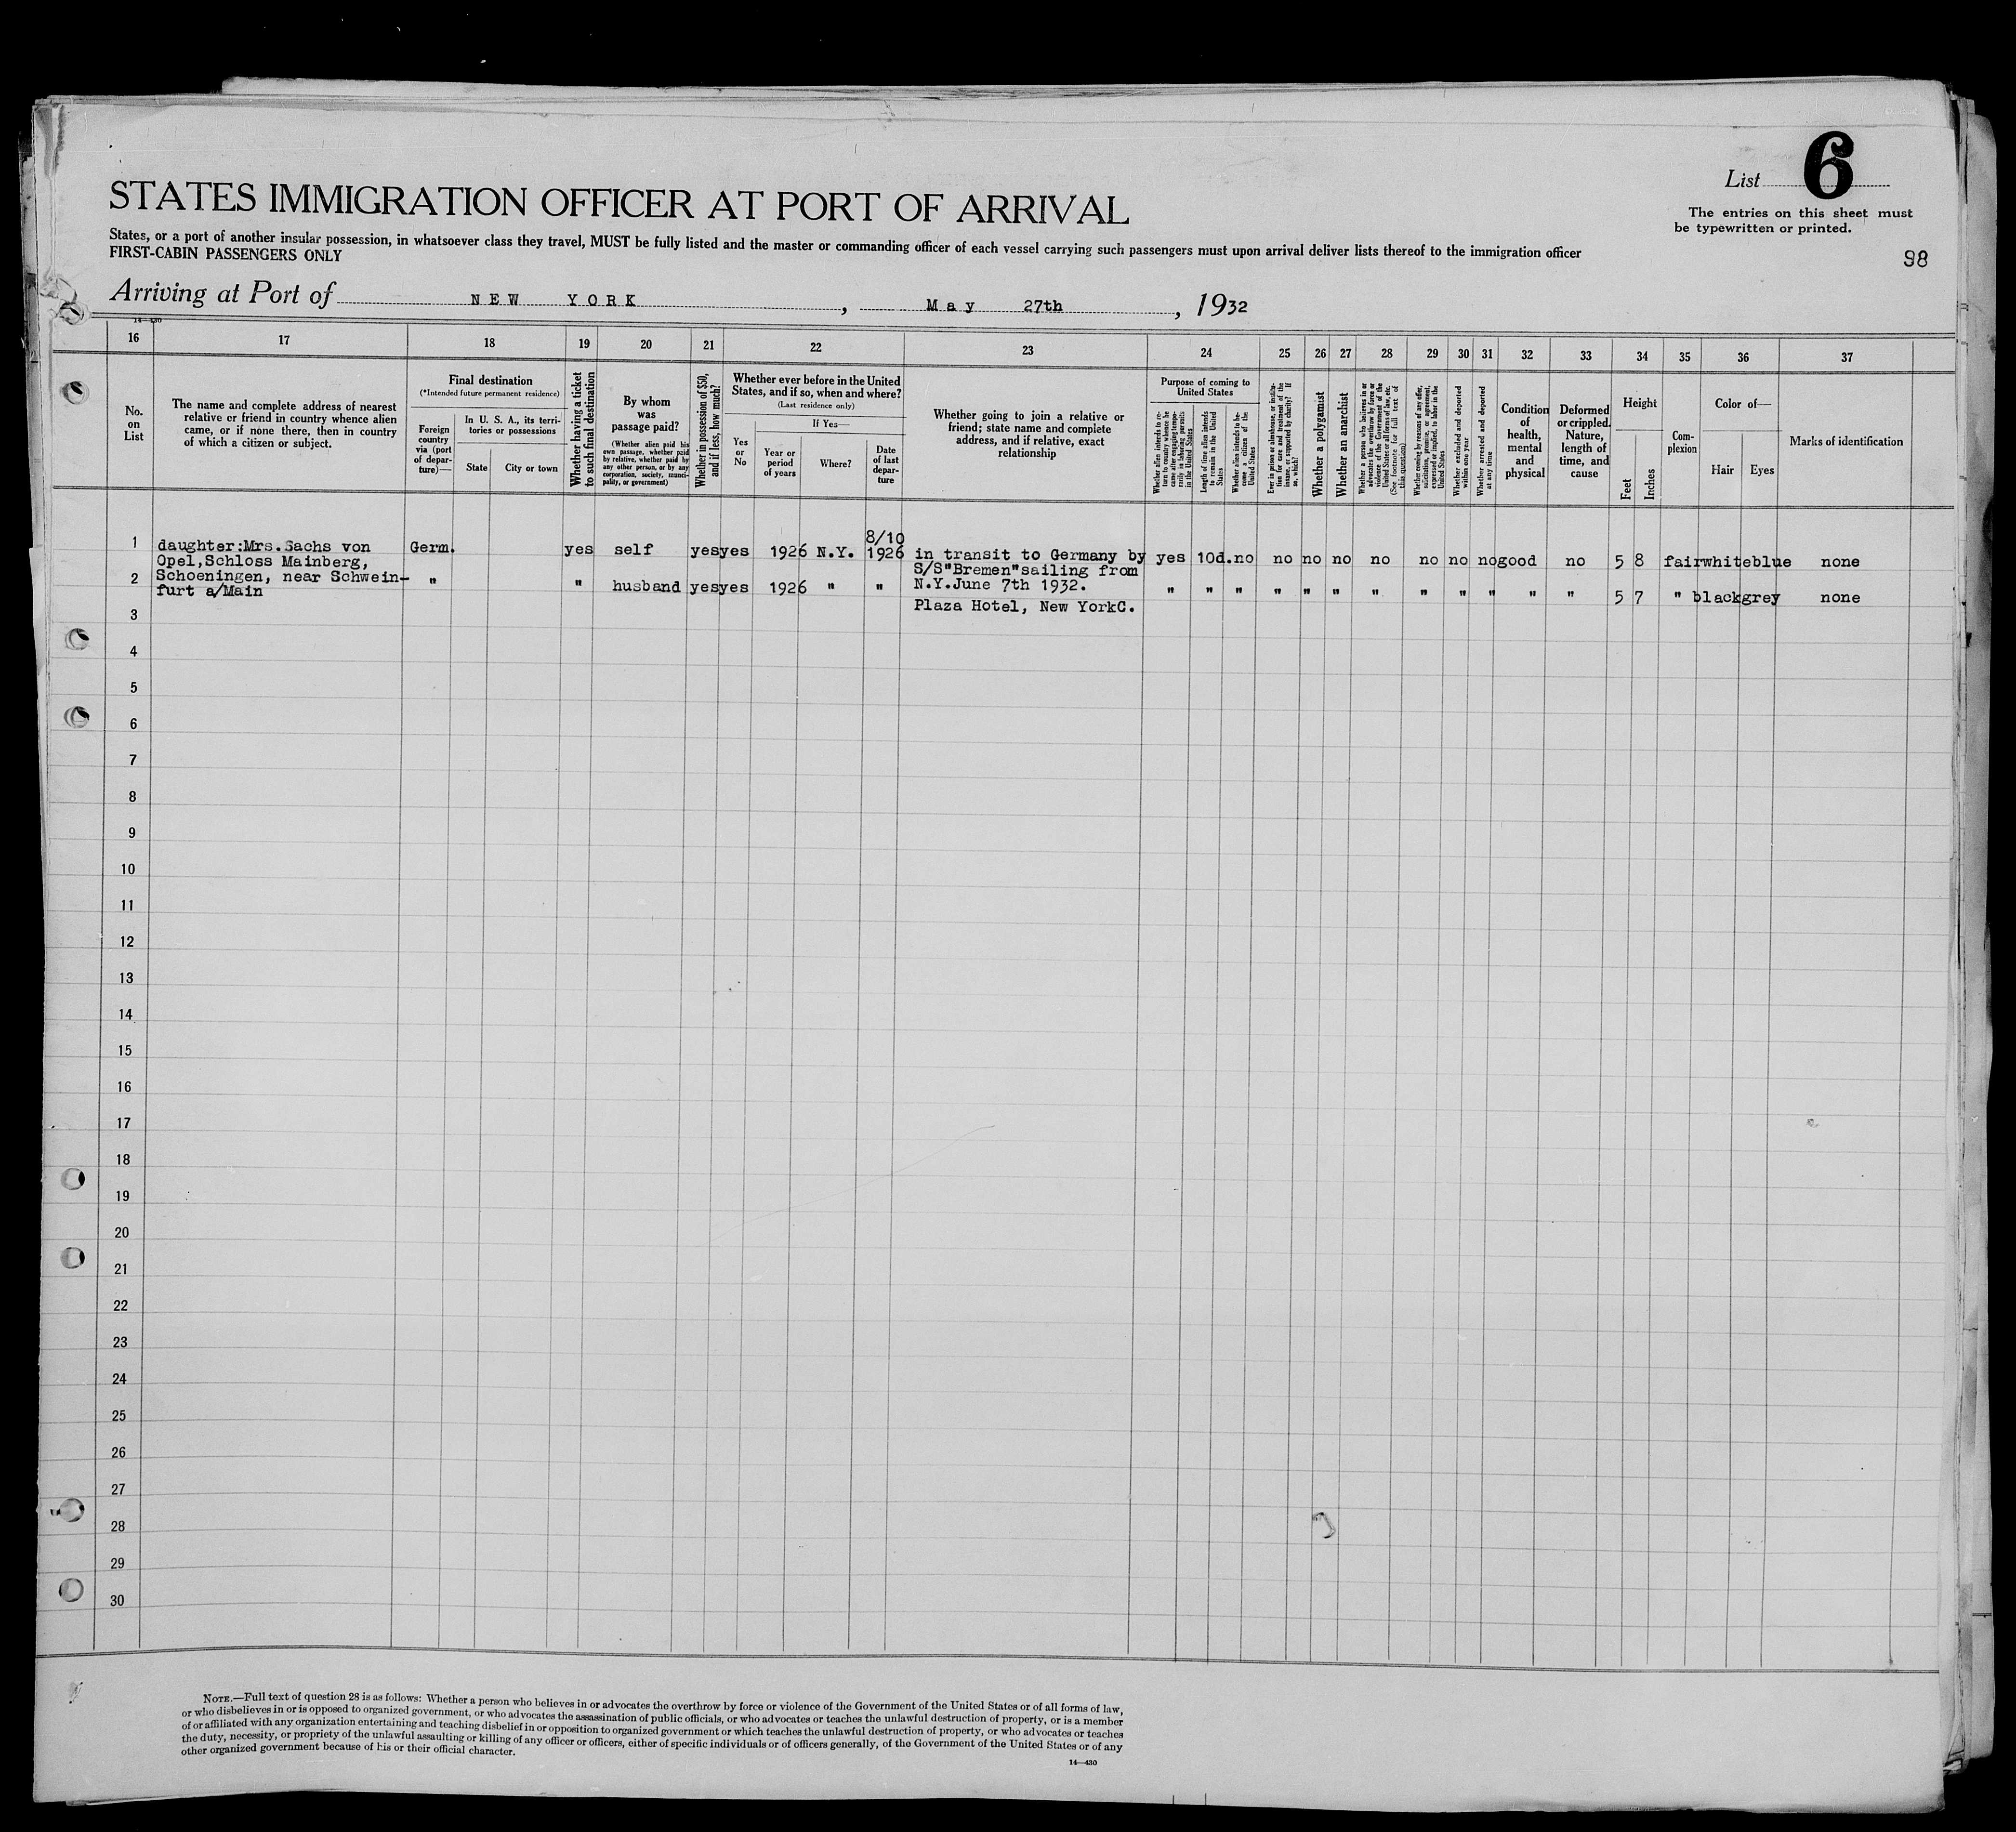 List 6
The entries on this sheet must
be typewritten or printed.
98
STATES IMMIGRATION OFFICER AT PORT OF ARRIVAL
States, or a port of another insular possession, in whatsoever class they travel, MUST be fully listed and the master or commanding officer of each vessel carrying such passengers must upon arrival deliver lists thereof to the immigration officer
FIRST-CABIN PASSENGERS ONLY
Arriving at Port of NEW YORK, May 27th, 1932
14—430
16 17 18 19 20 21 22 23 24 25 26 27 28 29 30 31 32 33 34 35 36 37
No.
on
List
The name and complete address of nearest
relative or friend in country whence alien
came, or if none there, then in country
of which a citizen or subject.
Final destination
(*Intended future permanent residence)
Foreign
country
via (port
of depar-
ture)—
In U. S. A., its terri-
tories or possessions
State
City or town
Whether having a ticket
to such final destination
By whom
was
passage paid?
(Whether alien paid his
own passage, whether paid
by relative, whether paid by
any other person, or by any
corporation, society, munici-
pality, or government)
Whether in possession of $50,
and if less, how much?
Whether ever before in the United
States, and if so, when and where?
(Last residence only)
Yes
or
No
If Yes—
Year or
period
of years
Where?
Date
of last
depar-
ture
Whether going to join a relative or
friend; state name and complete
address, and if relative, exact
relationship
Purpose of coming to
United States
Whether alien intends to re-
turn to country whence he
came after engaging tempo-
rarily in laboring pursuits
in the United States
Length of time alien intends
to remain in the United
States
Whether alien intends to be-
come a citizen of the
United States
Ever in prison or almshouse, or institu-
tion for care and treatment of the
insane, or supported by charity? If
so, which?
Whether a polygamist
Whether an anarchist
Whether a person who believes in or
advocates the overthrow by force or
violence of the Government of the
United States or all forms of law, etc.
(See footnote for full text of
this question)
Whether coming by reason of any offer,
solicitation, promise, or agreement,
expressed or implied, to labor in the
United States
Whether excluded and deported
within one year
Whether arrested and deported
at any time
Condition
of
health,
mental
and
physical
Deformed
or crippled.
Nature,
length of
time, and
cause
Height
Feet
Inches
Com-
plexion
Color of—
Hair
Eyes
Marks of identification
8/10
1 daughter:Mrs.Sachs von Germ. yes self yes yes 1926 N.Y. 1926 in transit to Germany by yes 10d. no no no no no no no no good no 5 8 fair white blue none
Opel,Schloss Mainberg, S/S"Bremen"sailing from
2 Schoeningen, near Schwein- " " husband yes yes 1926 " " N.Y.June 7th 1932. " " " " " " " " " " " " 5 7 " black grey none
furt a/Main
Plaza Hotel, New YorkC.
3
4
5
6
7
8
9
10
11
12
13
14
15
16
17
18
19
20
21
22
23
24
25
26
27
28
29
30
NOTE.—Full text of question 28 is as follows: Whether a person who believes in or advocates the overthrow by force or violence of the Government of the United States or of all forms of law,
or who disbelieves in or is opposed to organized government, or who advocates the assassination of public officials, or who advocates or teaches the unlawful destruction of property, or is a member
of or affiliated with any organization entertaining and teaching disbelief in or opposition to organized government or which teaches the unlawful destruction of property, or who advocates or teaches
the duty, necessity, or propriety of the unlawful assaulting or killing of any officer or officers, either of specific individuals or of officers generally, of the Government of the United States or of any
other organized government because of his or their official character.
14—430